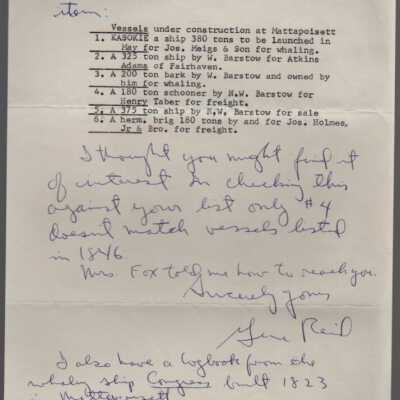 item:
Vessels under construction at Mattapoisett
1. KASOKIE a ship 380 tons to be launched in
May for Jos. Meigs & Son for whaling.
2. A 325 ton ship by W. Barstow for Atkins
Adams of Fairhaven.
3. A 200 ton bark by W. Barstow and owned by
him for whaling.
4. A 180 ton schooner by N.W. Barstow for
Henry Taber for freight.
5. A 375 ton ship by N.W. Barstow for sale
6. A herm. brig 160 tons by and for Jos. Holmes,
Jr & Bro. for freight.
I thought you might find it
of interest. In checking this
against your list only #4
doesn't match vessels listed
in 1846.
Mrs. Fox told me how to reach you.
Sincerely yours
Gene Reid
I also have a logbook from the
whaling ship Congress built 1823
in Mattapoisett